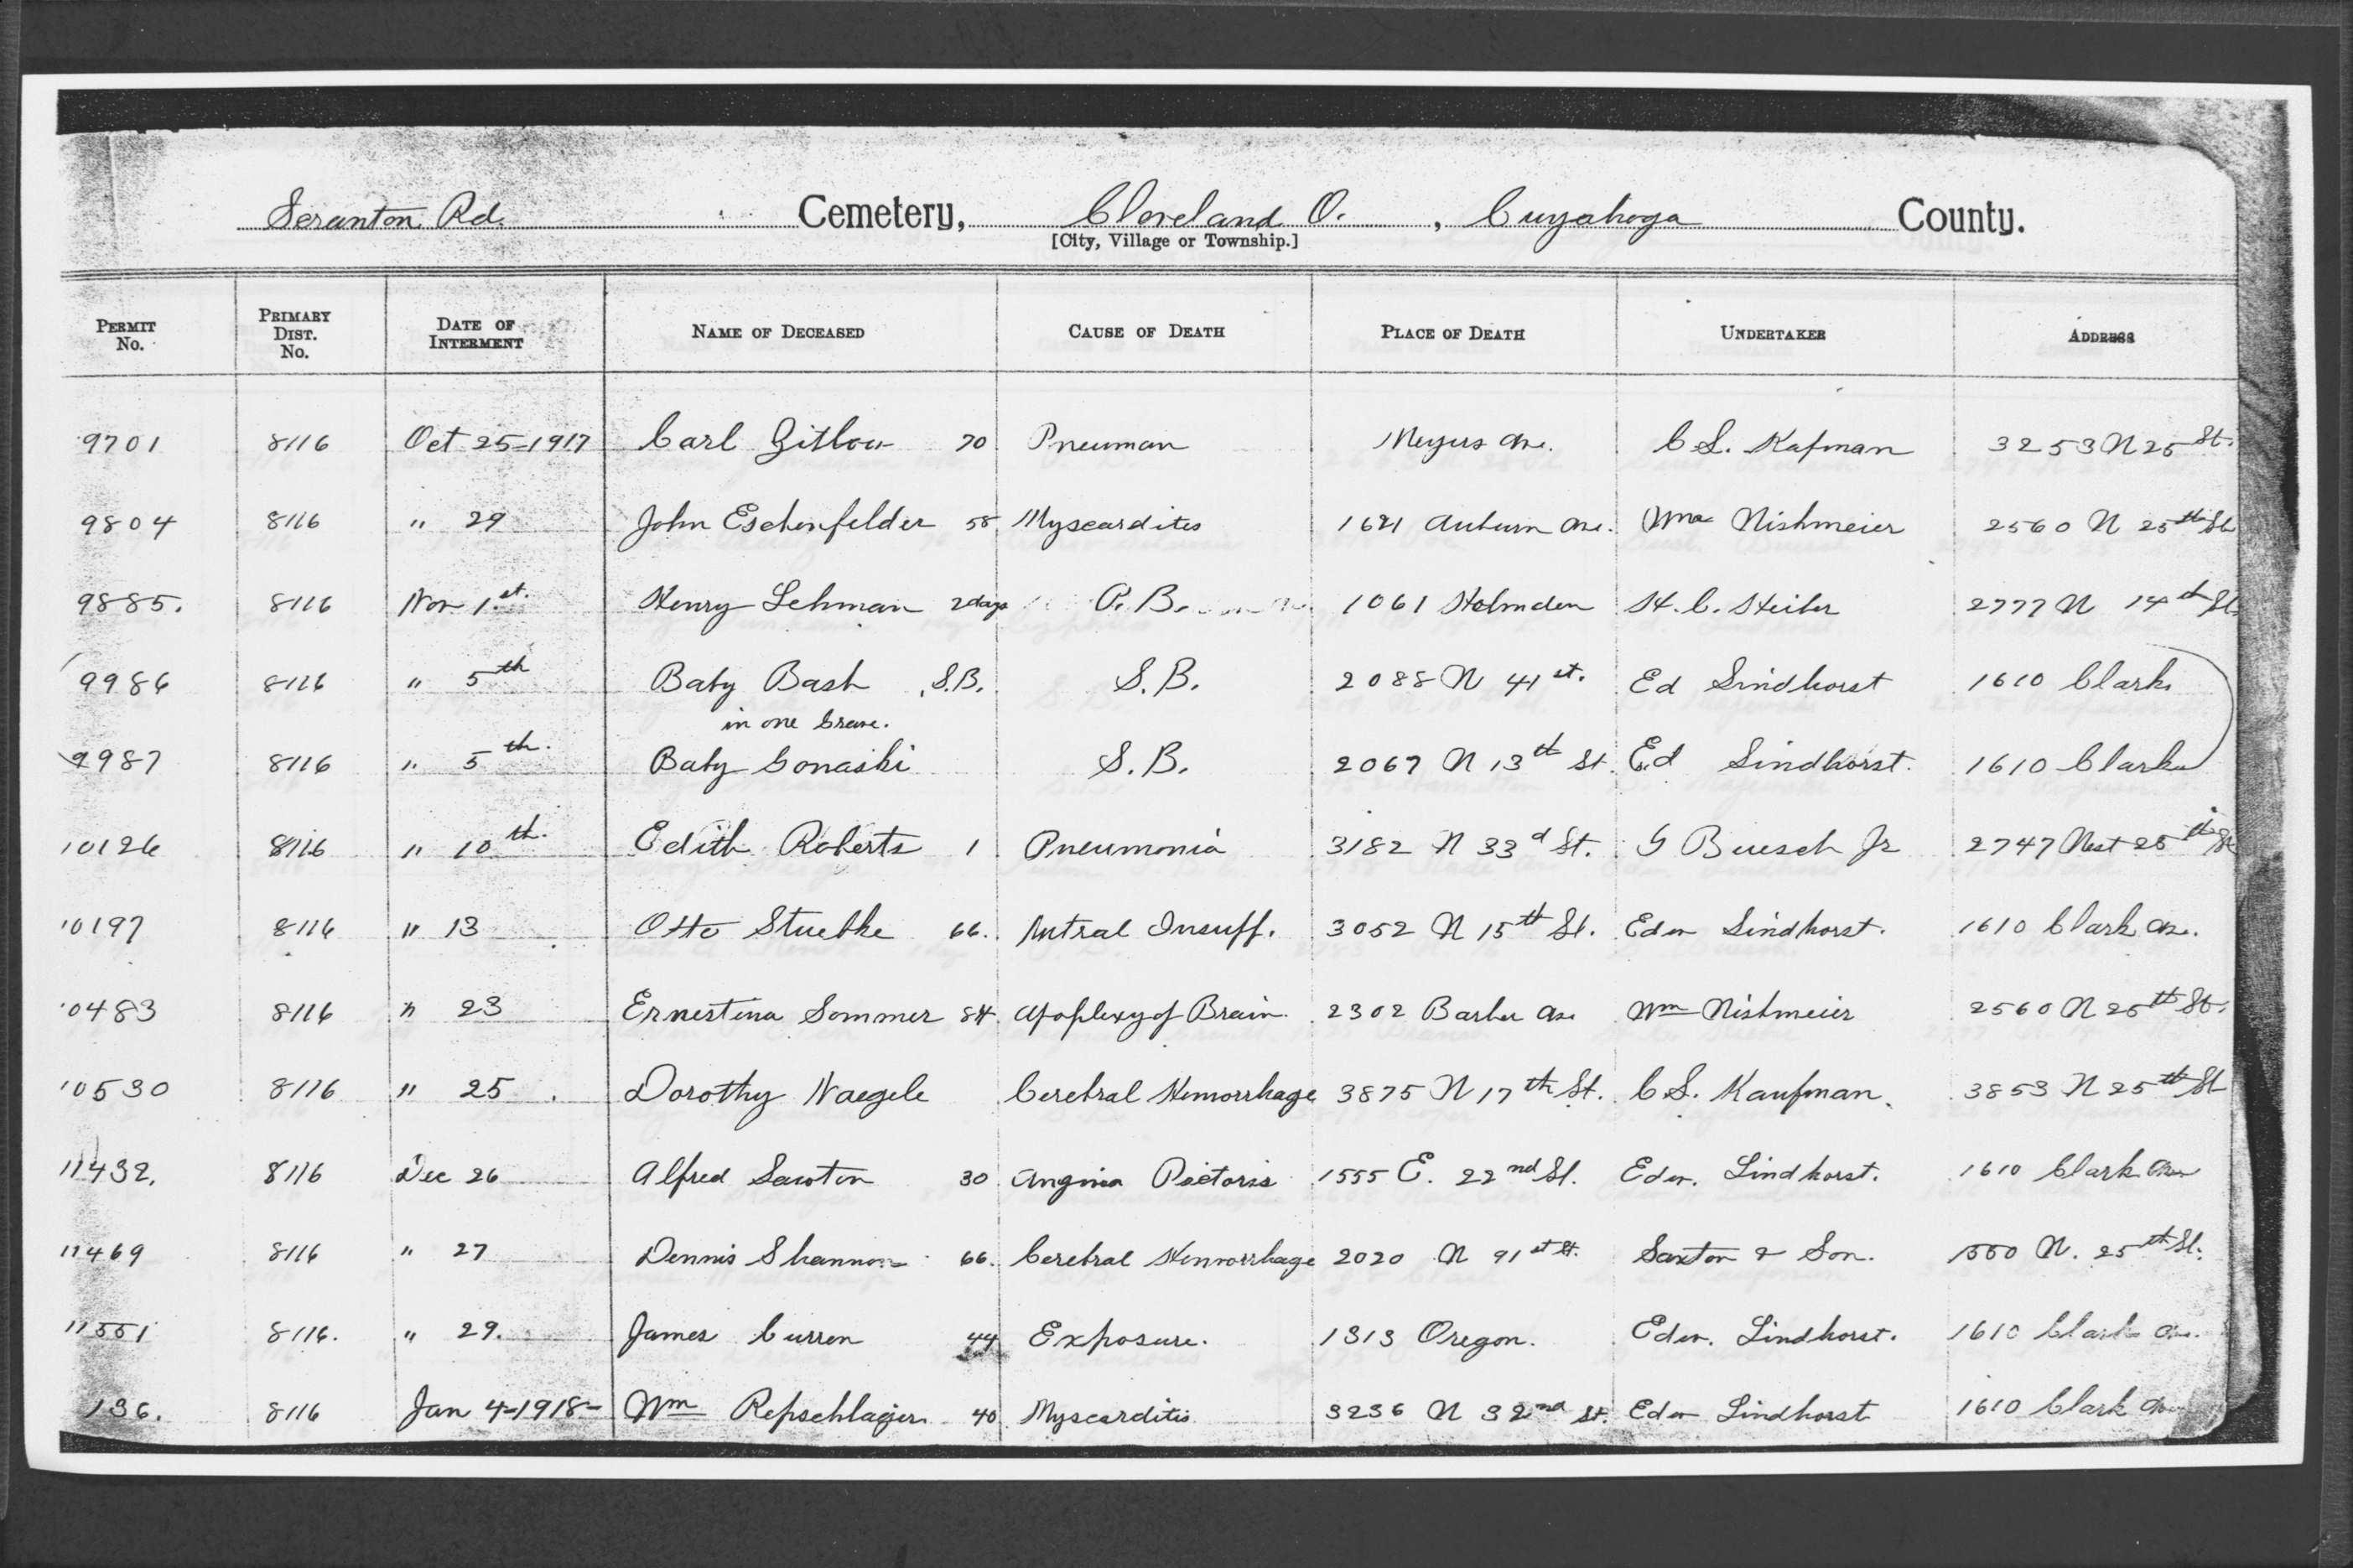 Scranton Rd. Cemetery, Cleveland O., Cuyahoga County.
[City, Village or Township.]
PERMIT No. PRIMARY DIST. No. DATE OF INTERMENT NAME OF DECEASED CAUSE OF DEATH PLACE OF DEATH UNDERTAKER ADDRESS
9701 8116 Oct 25-1917 Carl Gitlow 70 Pneuman Meyers Ave. C S. Kafman 3253 W 25 St.
9804 8116 " 29 John Eschenfelder 58 Myscarditis 1621 Auburn Ave. Wm Nishmeier 2560 W 25th St
9885. 8116 Nov 1st. Henry Lehman 2 days P. B. 1061 Holmden H. C. 2777 W 14th St.
9986 8116 " 5th Baby Bash S.B. S.B. 2088 W 41st. Ed Lindhorst 1610 Clark
in one Grave.
9987 8116 " 5th. Baby Gonaski S.B. 2067 W 13th St. Ed Lindhorst. 1610 Clark
10126 8116 " 10th. Edith Roberts 1 Pneumonia 3182 W 33d St. G Buesch Jr 2747 West 25th St
10197 8116 " 13 Otto Stuebke 66. Mitral Insuff. 3052 W 15th St. Edw Lindhorst. 1610 Clark Ave.
10483 8116 " 23 Ernestina Sommer 84 Apoplexy of Brain. 2302 Barber Ave Wm Nishmeier 2560 W 25th St.
10530 8116 " 25 Dorothy Naegele Cerebral Hemorrhage 3875 W 17th St. C S. Kaufman. 3853 W 25th St
11432. 8116 Dec 26 Alfred Sawton 30 Angina Pectoris 1555 E. 22nd St. Edw. Lindhorst. 1610 Clark Ave
11469 8116 " 27 Dennis Shannon 66. Cerebral Hemorrhage 2020 W 91st St. Saxton & Son. 1550 W. 25th St.
11551 8116. " 29. James Curren 44 Exposure. 1313 Oregon. Edw. Lindhorst. 1610 Clark Ave.
136. 8116 Jan 4-1918- Wm Repschlager 40 Myscarditis 3236 W 32nd St. Edw Lindhorst 1610 Clark Ave